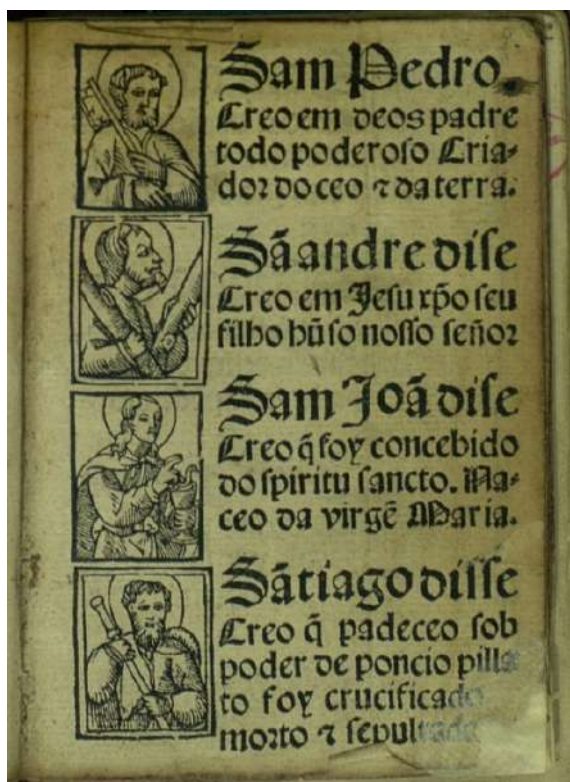 Sam Pedro.
Creo em deos padre
todo poderoso Cria-
dor do ceo ⁊ da terra.
Sã andre dise
Creo em Jesu xp̃o seu
filho hũ so nosso señor
Sam Joã dise
Creo q̃ foy concebido
do spiritu sancto. Na-
ceo da virgẽ Maria.
Sãtiago disse
Creo q̃ padeceo sob
poder de poncio pilla
to foy crucificado
morto ⁊ sepultado